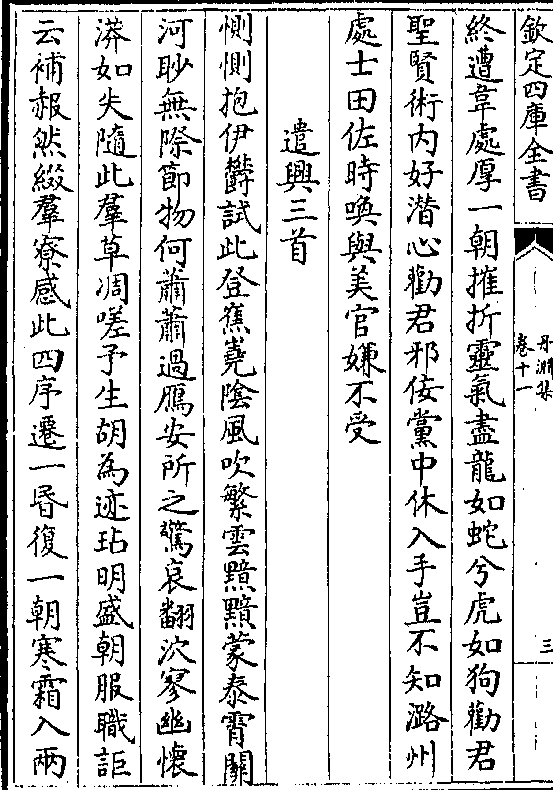 欽定四庫全書
丹淵集
卷十一
三
終遭韋處厚一朝摧折靈氣盡龍如蛇兮虎如狗勸君
聖賢術内好潜心勸君邪佞黨中休入手豈不知潞州
處士田佐時喚與美官嫌不受
遣興三首
惻惻抱伊鬱試此登譙嶤陰風吹繁雲黯黯蒙泰霄關
河眇無際節物何蕭蕭過鴈安所之驚哀翻沇寥幽懷
漭如失隨此羣草凋嗟予生胡為迹玷明盛朝服職詎
云補赧然綴羣寮感此四序遷一昬復一朝寒霜入兩